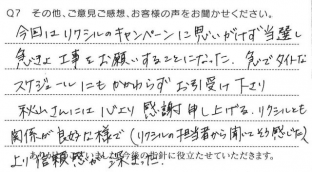 Q7 その他、ご意見ご感想、お客様の声をお聞かせください。
今回はリクシルのキャンペーンに思いがけず当選し
急きょ工事をお願いすることになった。急でタイトな
スケジュールにもかかわらずお引受け下さり
秋山さんには心より感謝申し上げる。リクシルとも
関係が良好な様で(リクシルの担当者から聞いてそう感じた)
より信頼感が深まった。
今後の指針に役立たせていただきます。